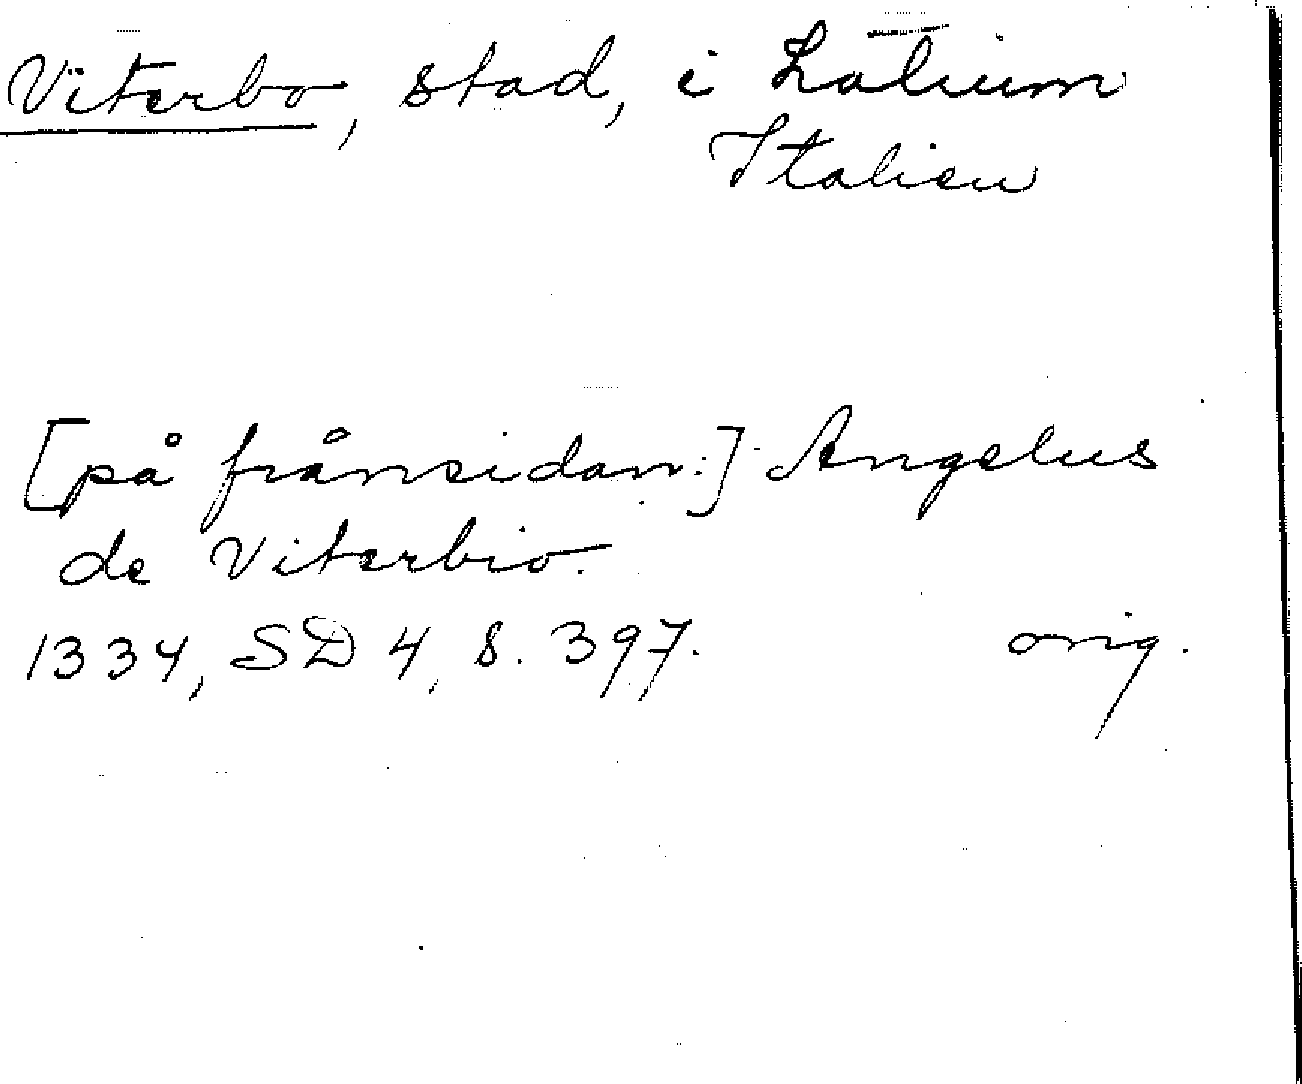 Viterbo, stad, i Latium
Italien
[på frånsidan:] Angelus
de Viterbio.
1334, SD 4, s. 397. orig.